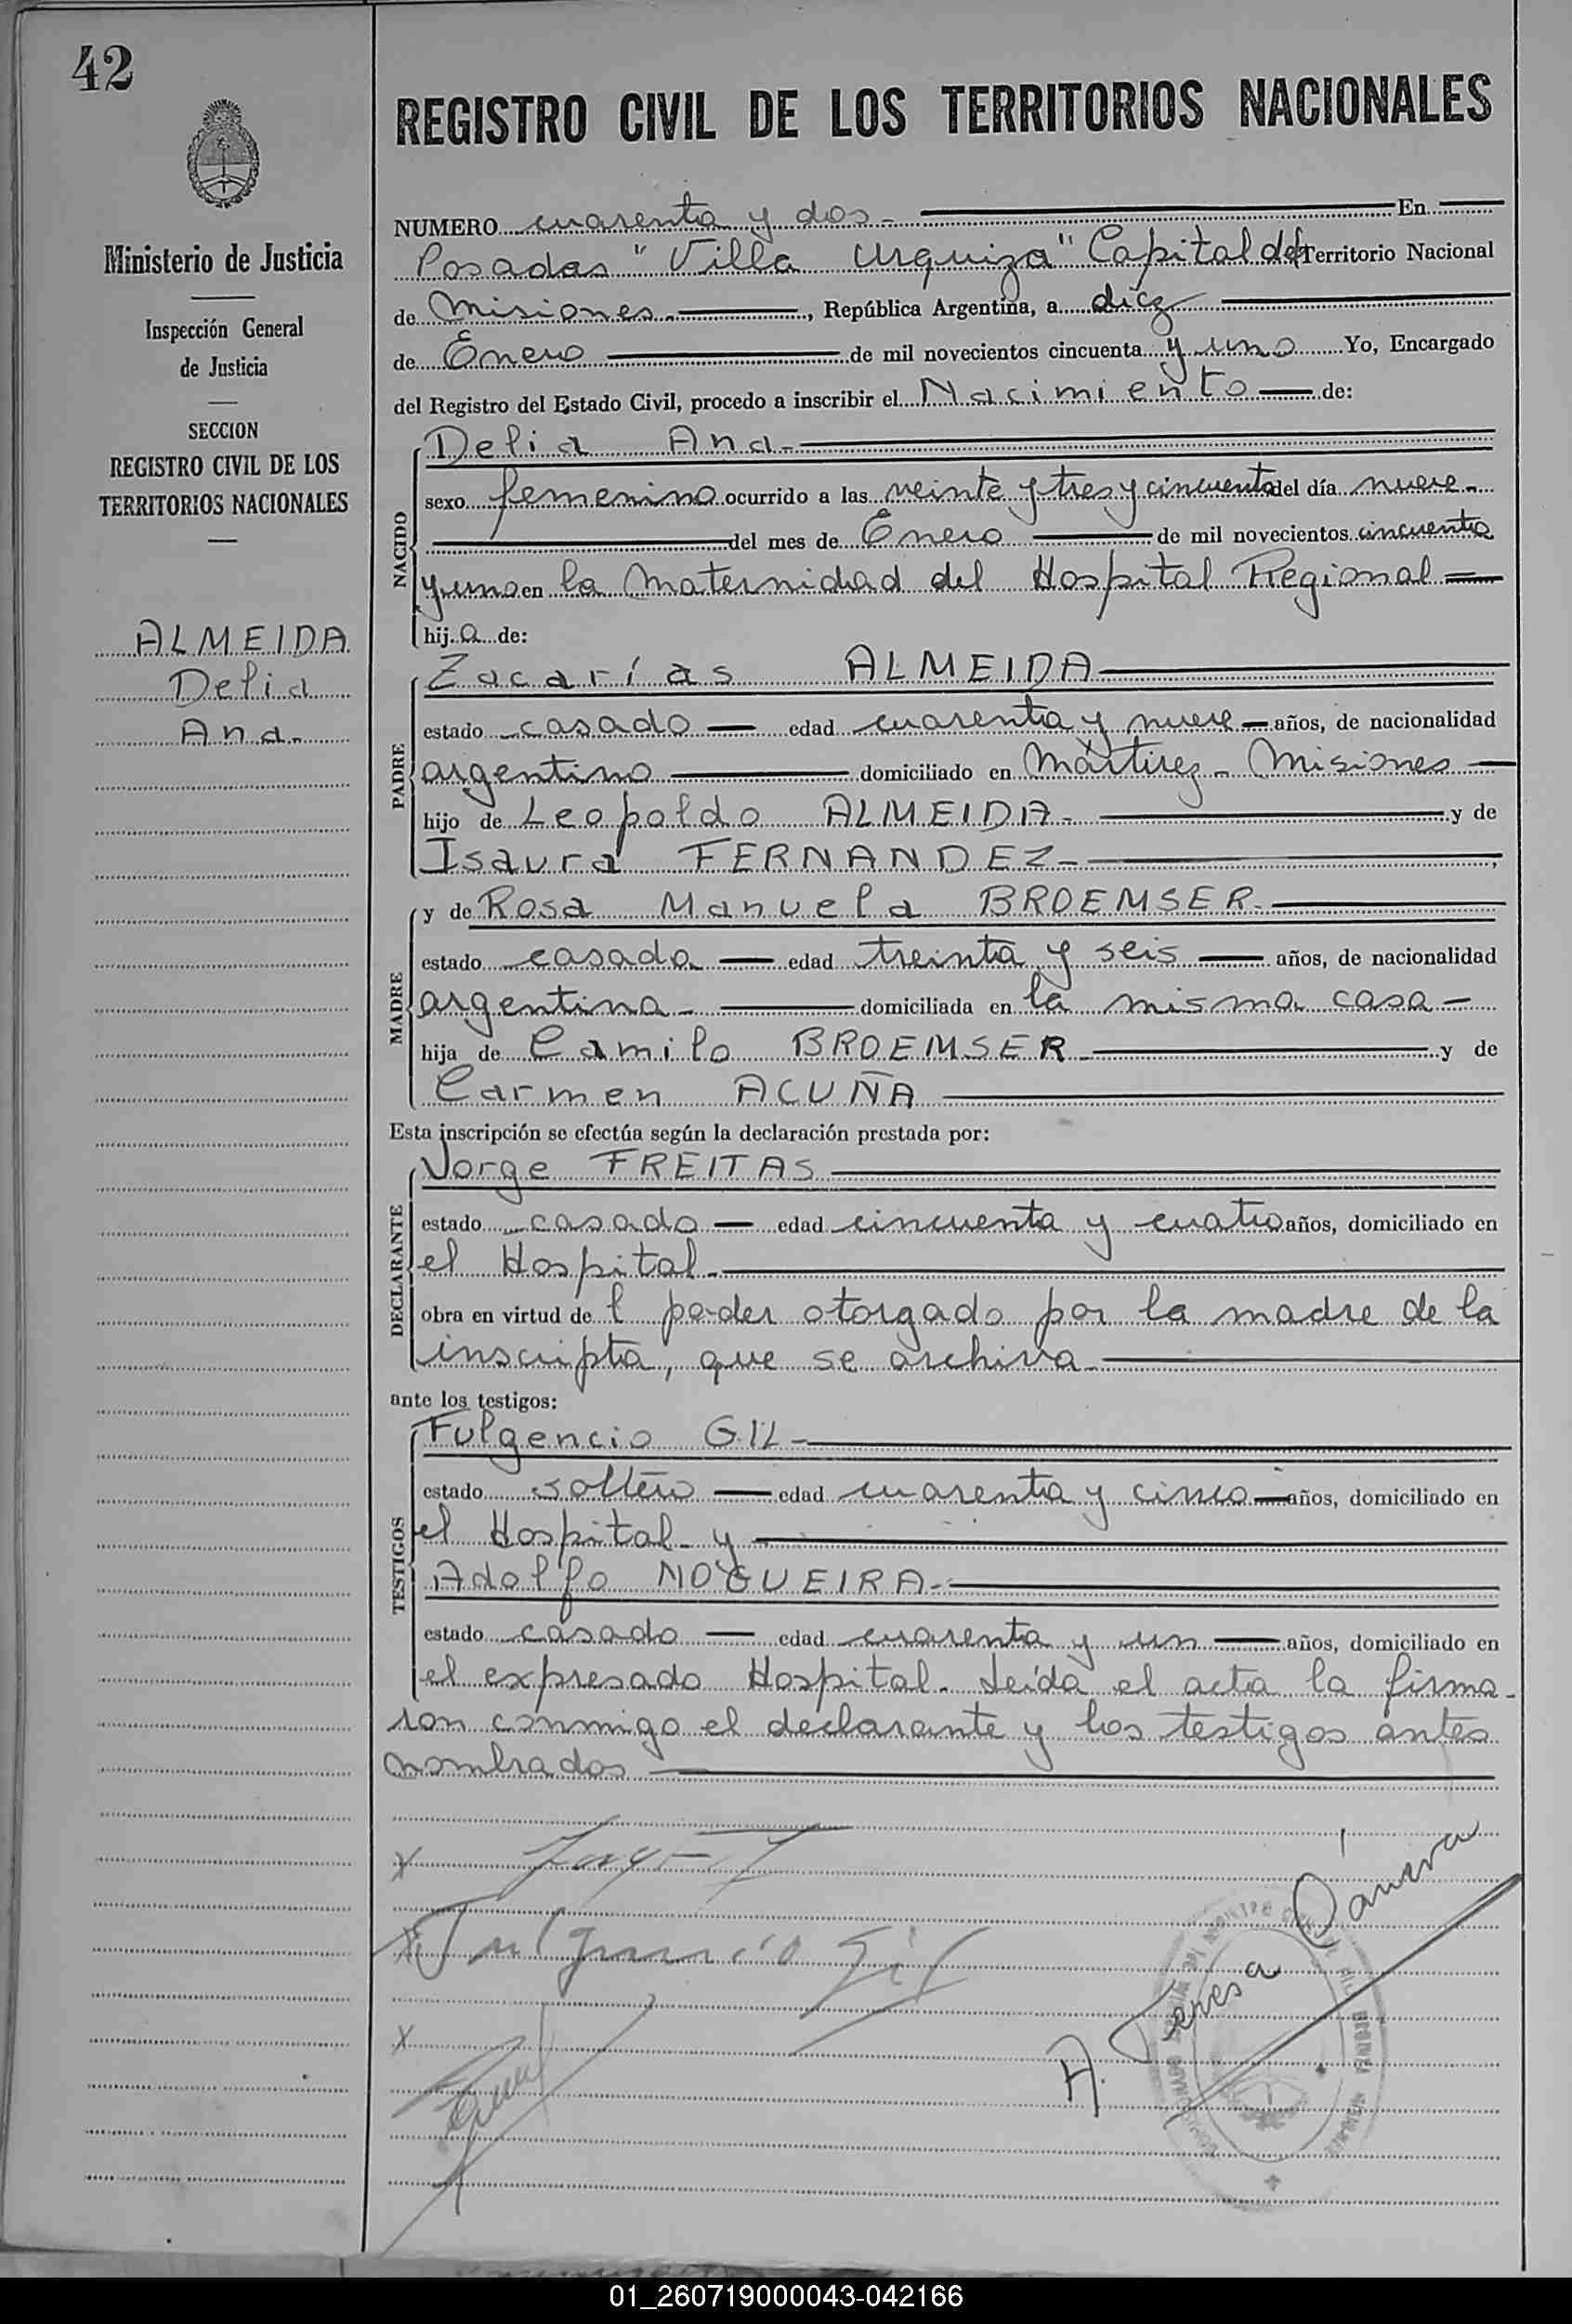 42
Ministerio de Justicia
Inspección General
de Justicia
SECCION
REGISTRO CIVIL DE LOS
TERRITORIOS NACIONALES
ALMEIDA
Delia
Ana.
REGISTRO CIVIL DE LOS TERRITORIOS NACIONALES
NUMERO cuarenta y dos.- En
Posadas "Villa Urquiza" Capital del Territorio Nacional
de Misiones.-, República Argentina, a diez
de Enero de mil novecientos cincuenta y uno Yo, Encargado
del Registro del Estado Civil, procedo a inscribir el Nacimiento de:
NACIDO
Delia Ana.-
sexo femenino ocurrido a las veinte y tres y cincuenta del día nueve.-
del mes de Enero de mil novecientos cincuenta
y uno en la Maternidad del Hospital Regional
hij.a de:
PADRE
Zacarías ALMEIDA
estado casado edad cuarenta y nueve años, de nacionalidad
argentino domiciliado en Mártirez - Misiones
hijo de Leopoldo ALMEIDA.- y de
Isaura FERNANDEZ-,
MADRE
y de Rosa Manuela BROEMSER.
estado casada edad treinta y seis años, de nacionalidad
argentina.- domiciliada en la misma casa -
hija de Camilo BROEMSER y de
Carmen ACUÑA
Esta inscripción se efectúa según la declaración prestada por:
DECLARANTE
Jorge FREITAS
estado casado edad cincuenta y cuatro años, domiciliado en
el Hospital.-
obra en virtud de l poder otorgado por la madre de la
inscripta, que se archiva.-
ante los testigos:
TESTIGOS
Fulgencio GIL-
estado soltero edad cuarenta y cinco años, domiciliado en
el Hospital- y
Adolfo NOGUEIRA.-
estado casado edad cuarenta y un años, domiciliado en
el expresado Hospital. Leída el acta la firma-
ron conmigo el declarante y los testigos antes
nombrados
x
x Fulgencio Gil
x
A. Teresa
01_260719000043-042166